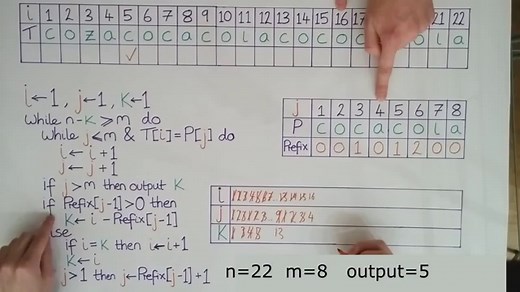 i 1 2 3 4 5 6 7 8 9 10 11 12 13 14 15 16 17 21 22
T C O Z A C O C A C O L A C O C O L A
✓
i←1, j←1, K←1
While n-K ⩾ m do
While j⩽m & T[i]=P[j] do
i ← i+1
j ← j+1
if j>m then output K
if Prefix[j-1]>0 then
K← i - Prefix[j-1]
else
if i=K then i←i+1
K←i
j>1 then j←Prefix[j-1]+1
j 1 2 3 4 5 6 7 8
P C O C A C O L A
Prefix 0 0 1 0 1 2 0 0
i
j
K
n=22 m=8 output=5